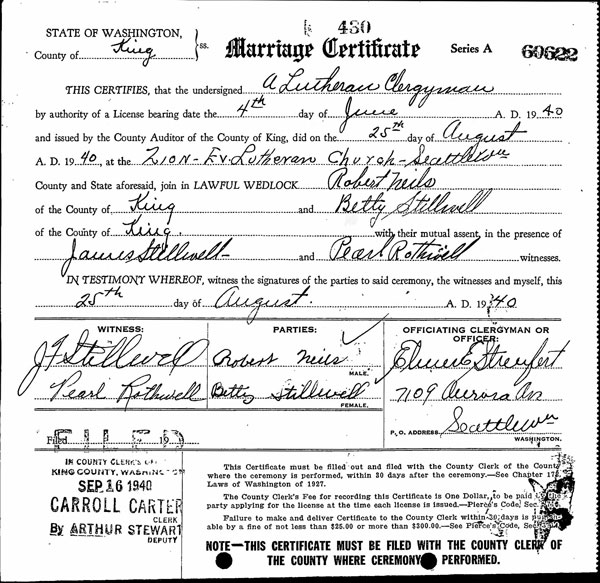 430
STATE OF WASHINGTON,
County of King } ss.
Marriage Certificate
Series A 60622
THIS CERTIFIES, that the undersigned A Lutheran Clergyman
by authority of a License bearing date the 4th day of June A. D. 1940
and issued by the County Auditor of the County of King, did on the 25th day of August
A. D. 1940, at the Zion-Ev. Lutheran Church-Seattle Wn
County and State aforesaid, join in LAWFUL WEDLOCK Robert Neils
of the County of King and Betty Stillwell
of the County of King. with their mutual assent, in the presence of
James Stillwell and Pearl Rothwell witnesses.
IN TESTIMONY WHEREOF, witness the signatures of the parties to said ceremony, the witnesses and myself, this
25th day of August. A. D. 1940
WITNESS:
J F Stillwell
Pearl Rothwell
PARTIES:
Robert Neils
MALE.
Betty Stillwell
FEMALE.
OFFICIATING CLERGYMAN OR
OFFICER:
Elmer E Streufert
7109 Aurora Av
P. O. ADDRESS Seattle Wn
WASHINGTON.
Filed 19
FILED
IN COUNTY CLERK'S OF
KING COUNTY, WASHINGTON
SEP 16 1940
CARROLL CARTER
CLERK
By ARTHUR STEWART
DEPUTY
This Certificate must be filled out and filed with the County Clerk of the County
where the ceremony is performed, within 30 days after the ceremony.—See Chapter 172,
Laws of Washington of 1927.
The County Clerk's Fee for recording this Certificate is One Dollar, to be paid by the
party applying for the license at the time each license is issued.—Pierce's Code, Sec.
Failure to make and deliver Certificate to the County Clerk within 30 days is punishable
by a fine of not less than $25.00 or more than $300.00.—See Pierce's Code, Sec.
NOTE—THIS CERTIFICATE MUST BE FILED WITH THE COUNTY CLERK OF
THE COUNTY WHERE CEREMONY PERFORMED.